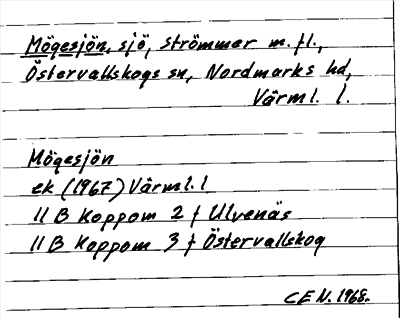 Mögesjön, sjö, Strömmer m.fl.,
Östervallskogs sn, Nordmarks hd,
Värml. l.
Mögesjön
ek (1967) Värml. l
11 B Koppom 2 f Ulvenäs
11 B Koppom 3 f Östervallskog
CEN. 1968.